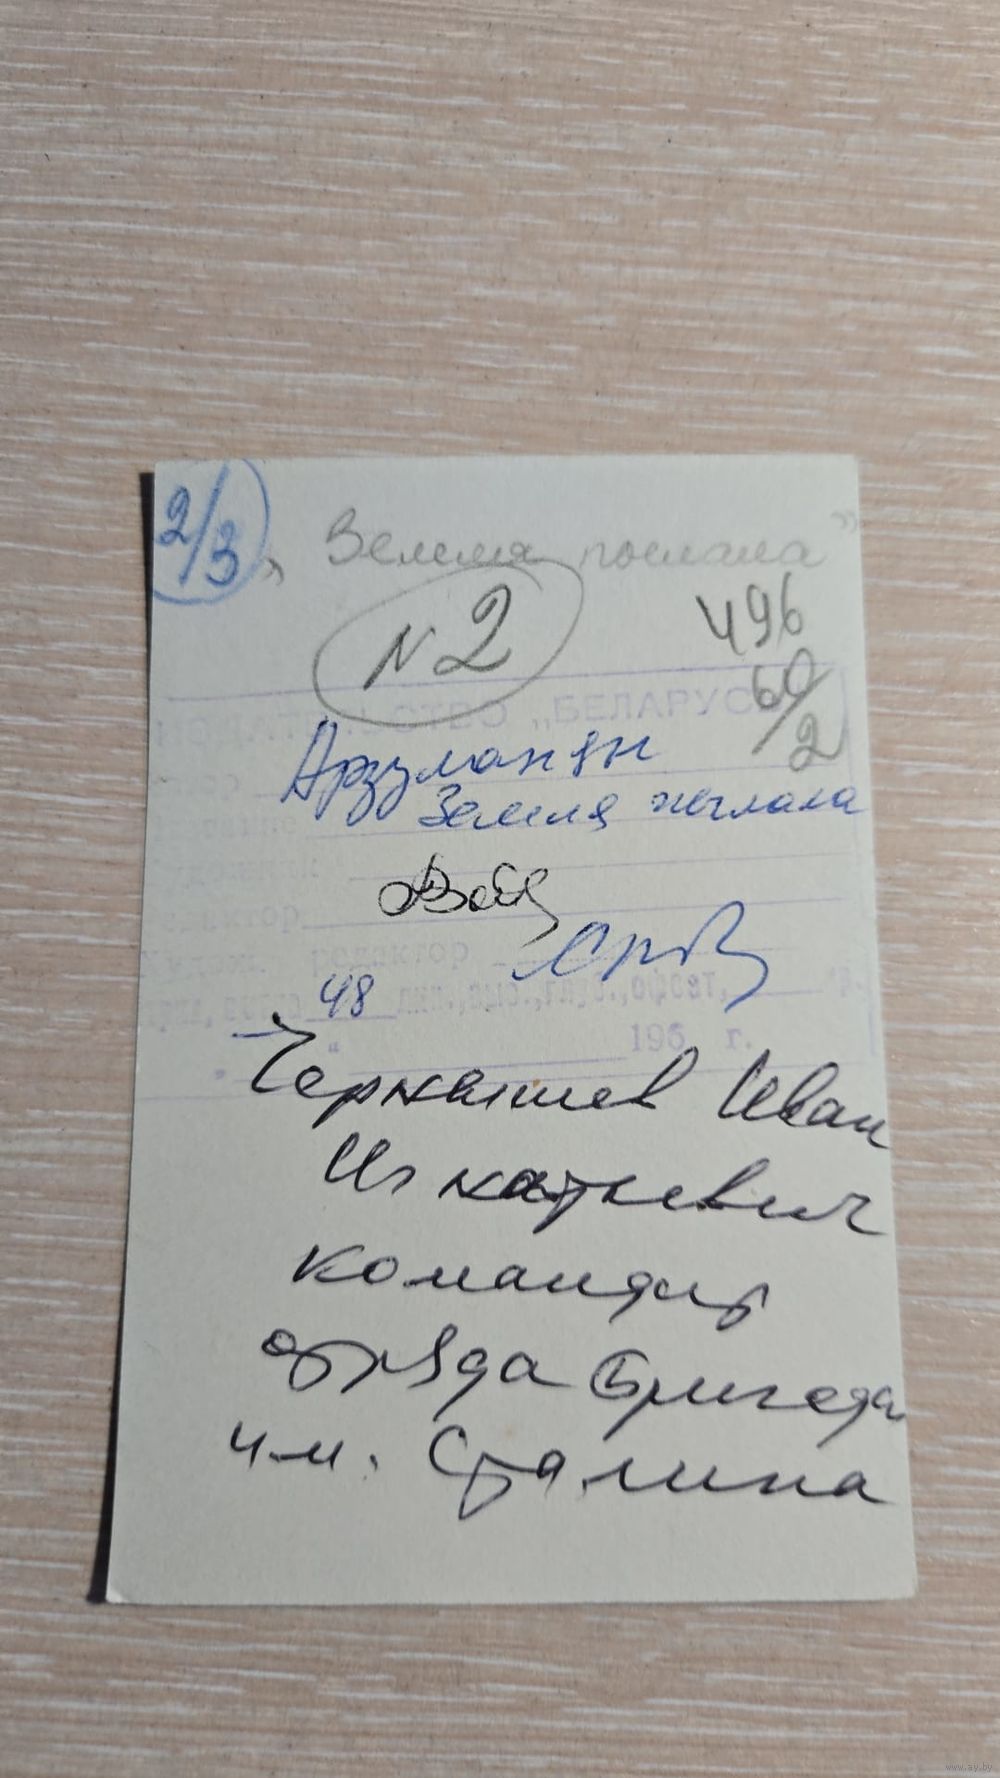 2/3
„Земля пылала”
N2
496
60/2
ИЗДАТЕЛЬСТВО „БЕЛАРУСЬ
Арзуманян
Земля пылала
редактор
редактор
48 офсет,
196 г.
Чернышев Иван
Игнатьевич
командир
отряда бригада
им. Сталина
www.ay.by